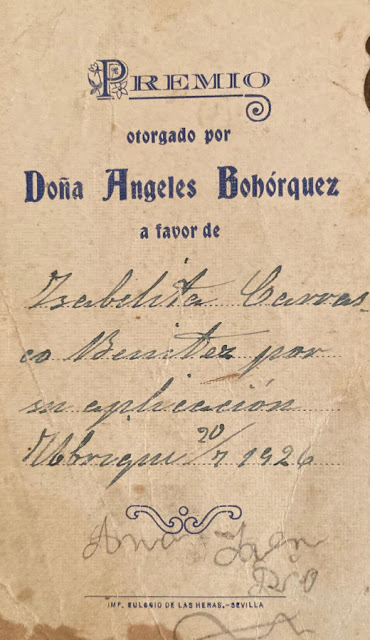 PREMIO
otorgado por
Doña Angeles Bohórquez
a favor de
Isabelita Carras-
co Benitez por
su aplicación
Ubrique 20/7 1926
IMP. EULOGIO DE LAS HERAS.-SEVILLA